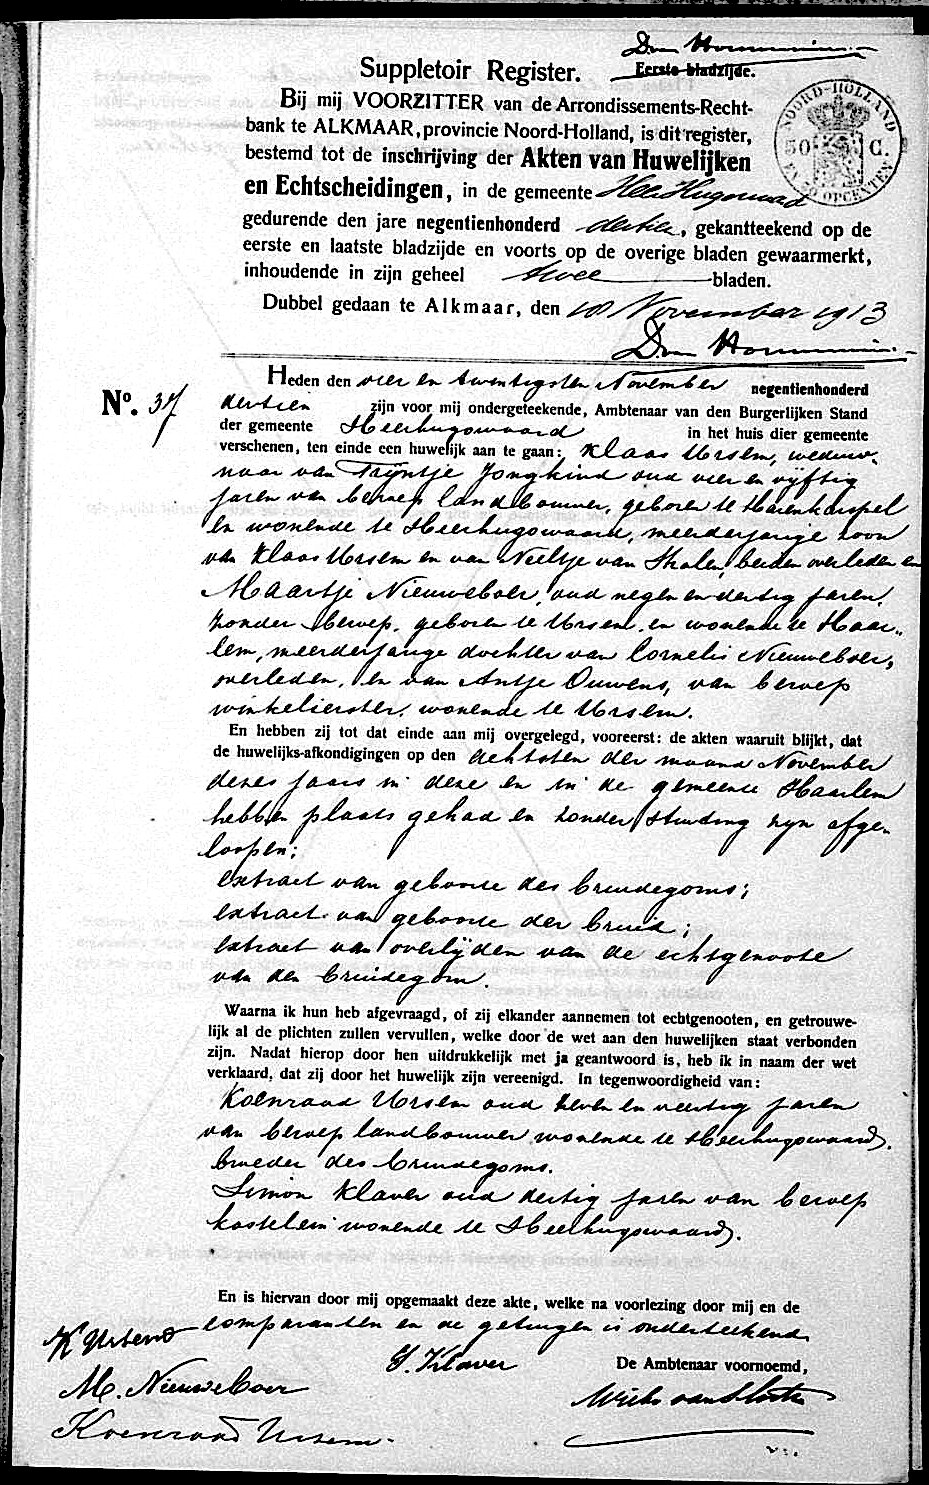 Suppletoir Register.
Eerste bladzijde.
Bij mij VOORZITTER van de Arrondissements-Recht-
bank te ALKMAAR, provincie Noord-Holland, is dit register,
bestemd tot de inschrijving der Akten van Huwelijken
en Echtscheidingen, in de gemeente HeerHugowaard
gedurende den jare negentienhonderd dertien, gekantteekend op de
eerste en laatste bladzijde en voorts op de overige bladen gewaarmerkt,
inhoudende in zijn geheel twee bladen.
Dubbel gedaan te Alkmaar, den 18 November 1913
NOORD-HOLLAND
50 C.
EN 50 OPCENTEN.
No. 37
Heden den vier en twintigsten November negentienhonderd
dertien zijn voor mij ondergeteekende, Ambtenaar van den Burgerlijken Stand
der gemeente Heerhugowaard in het huis dier gemeente
verschenen, ten einde een huwelijk aan te gaan: Klaas Ursem, weduw-
naar van Trijntje Jongkind oud vier en vijftig
jaren van beroep landbouwer, geboren te Harenkarspel
en wonende te Heerhugowaard, meerderjarige zoon
van Klaas Ursem en van Neeltje van Stralen, beiden overleden en
Maartje Nieuweboer, oud negen en dertig jaren,
zonder beroep, geboren te Ursem, en wonende te Haar-
lem, meerderjarige dochter van Cornelis Nieuweboer,
overleden, en van Antje Ouwens, van beroep
winkelierster, wonende te Ursem.
En hebben zij tot dat einde aan mij overgelegd, vooreerst: de akten waaruit blijkt, dat
de huwelijks-afkondigingen op den achtsten der maand November
dezes jaars in deze en in de gemeente Haarlem
hebben plaats gehad en zonder stuiting zijn afge-
loopen;
extract van geboorte des bruidegoms;
extract van geboorte der bruid;
extract van overlijden van de echtgenoote
van den bruidegom.
Waarna ik hun heb afgevraagd, of zij elkander aannemen tot echtgenooten, en getrouwe-
lijk al de plichten zullen vervullen, welke door de wet aan den huwelijken staat verbonden
zijn. Nadat hierop door hen uitdrukkelijk met ja geantwoord is, heb ik in naam der wet
verklaard, dat zij door het huwelijk zijn vereenigd. In tegenwoordigheid van:
Koenraad Ursem oud zeven en veertig jaren
van beroep landbouwer wonende te Heerhugowaard,
broeder des bruidegoms.
Simon Klaver oud dertig jaren van beroep
kastelein wonende te Heerhugowaard.
En is hiervan door mij opgemaakt deze akte, welke na voorlezing door mij en de
comparanten en de getuigen is onderteekend.
K Ursem
S. Klaver
De Ambtenaar voornoemd,
M. Nieuweboer
Koenraad Ursem